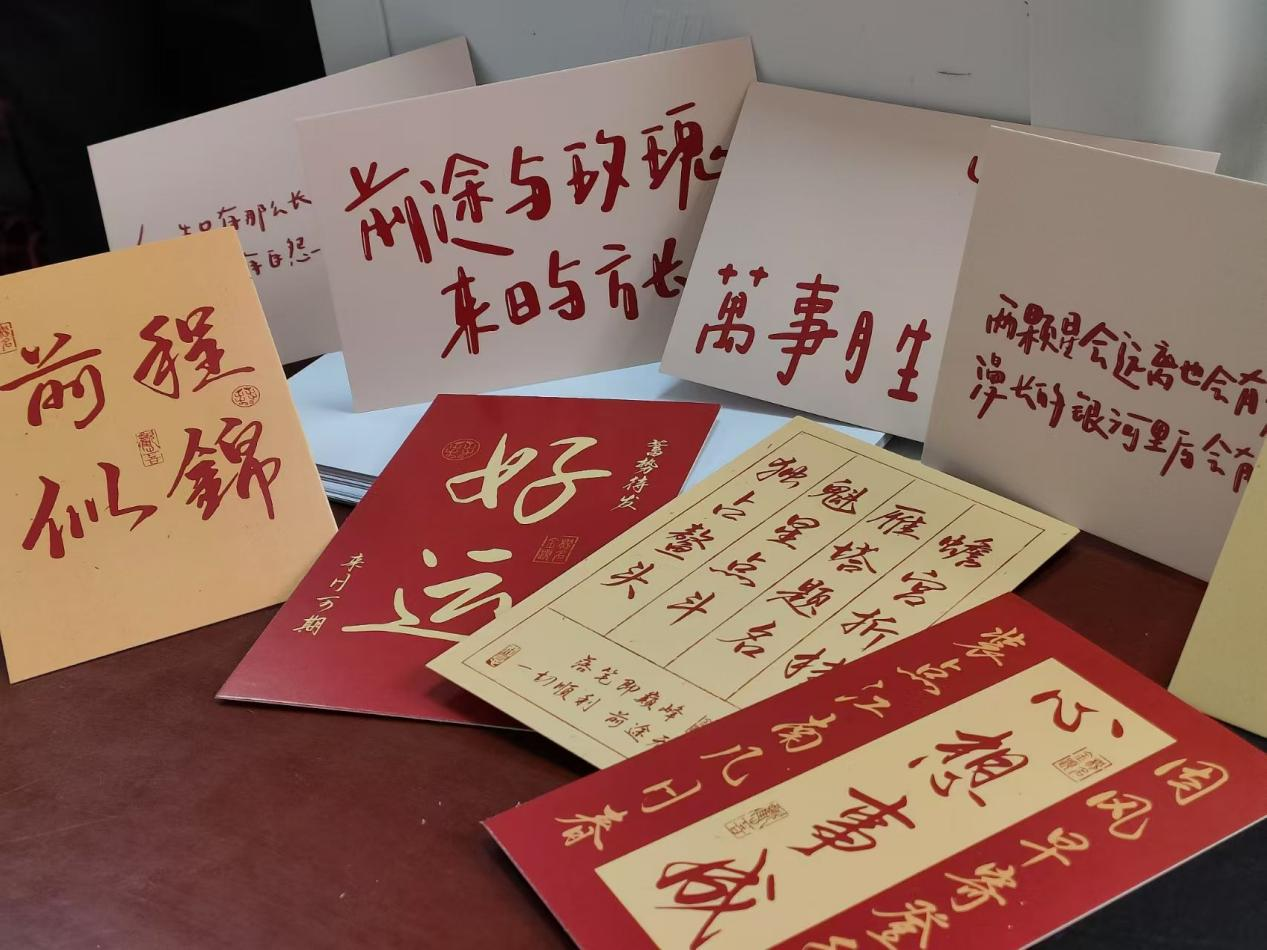 生只有那么长
前途与玫瑰
来日与方长
萬事月生
两颗星会远离也会有
漫长的银河里后会有
前程
似錦
好
运
蓄势待发
来日可期
蟾宫折桂
雁塔题名
魁星点斗
独占鳌头
落笔即巅峰
一切顺利 前途无
心想事成
装点江南几月春
早寄登